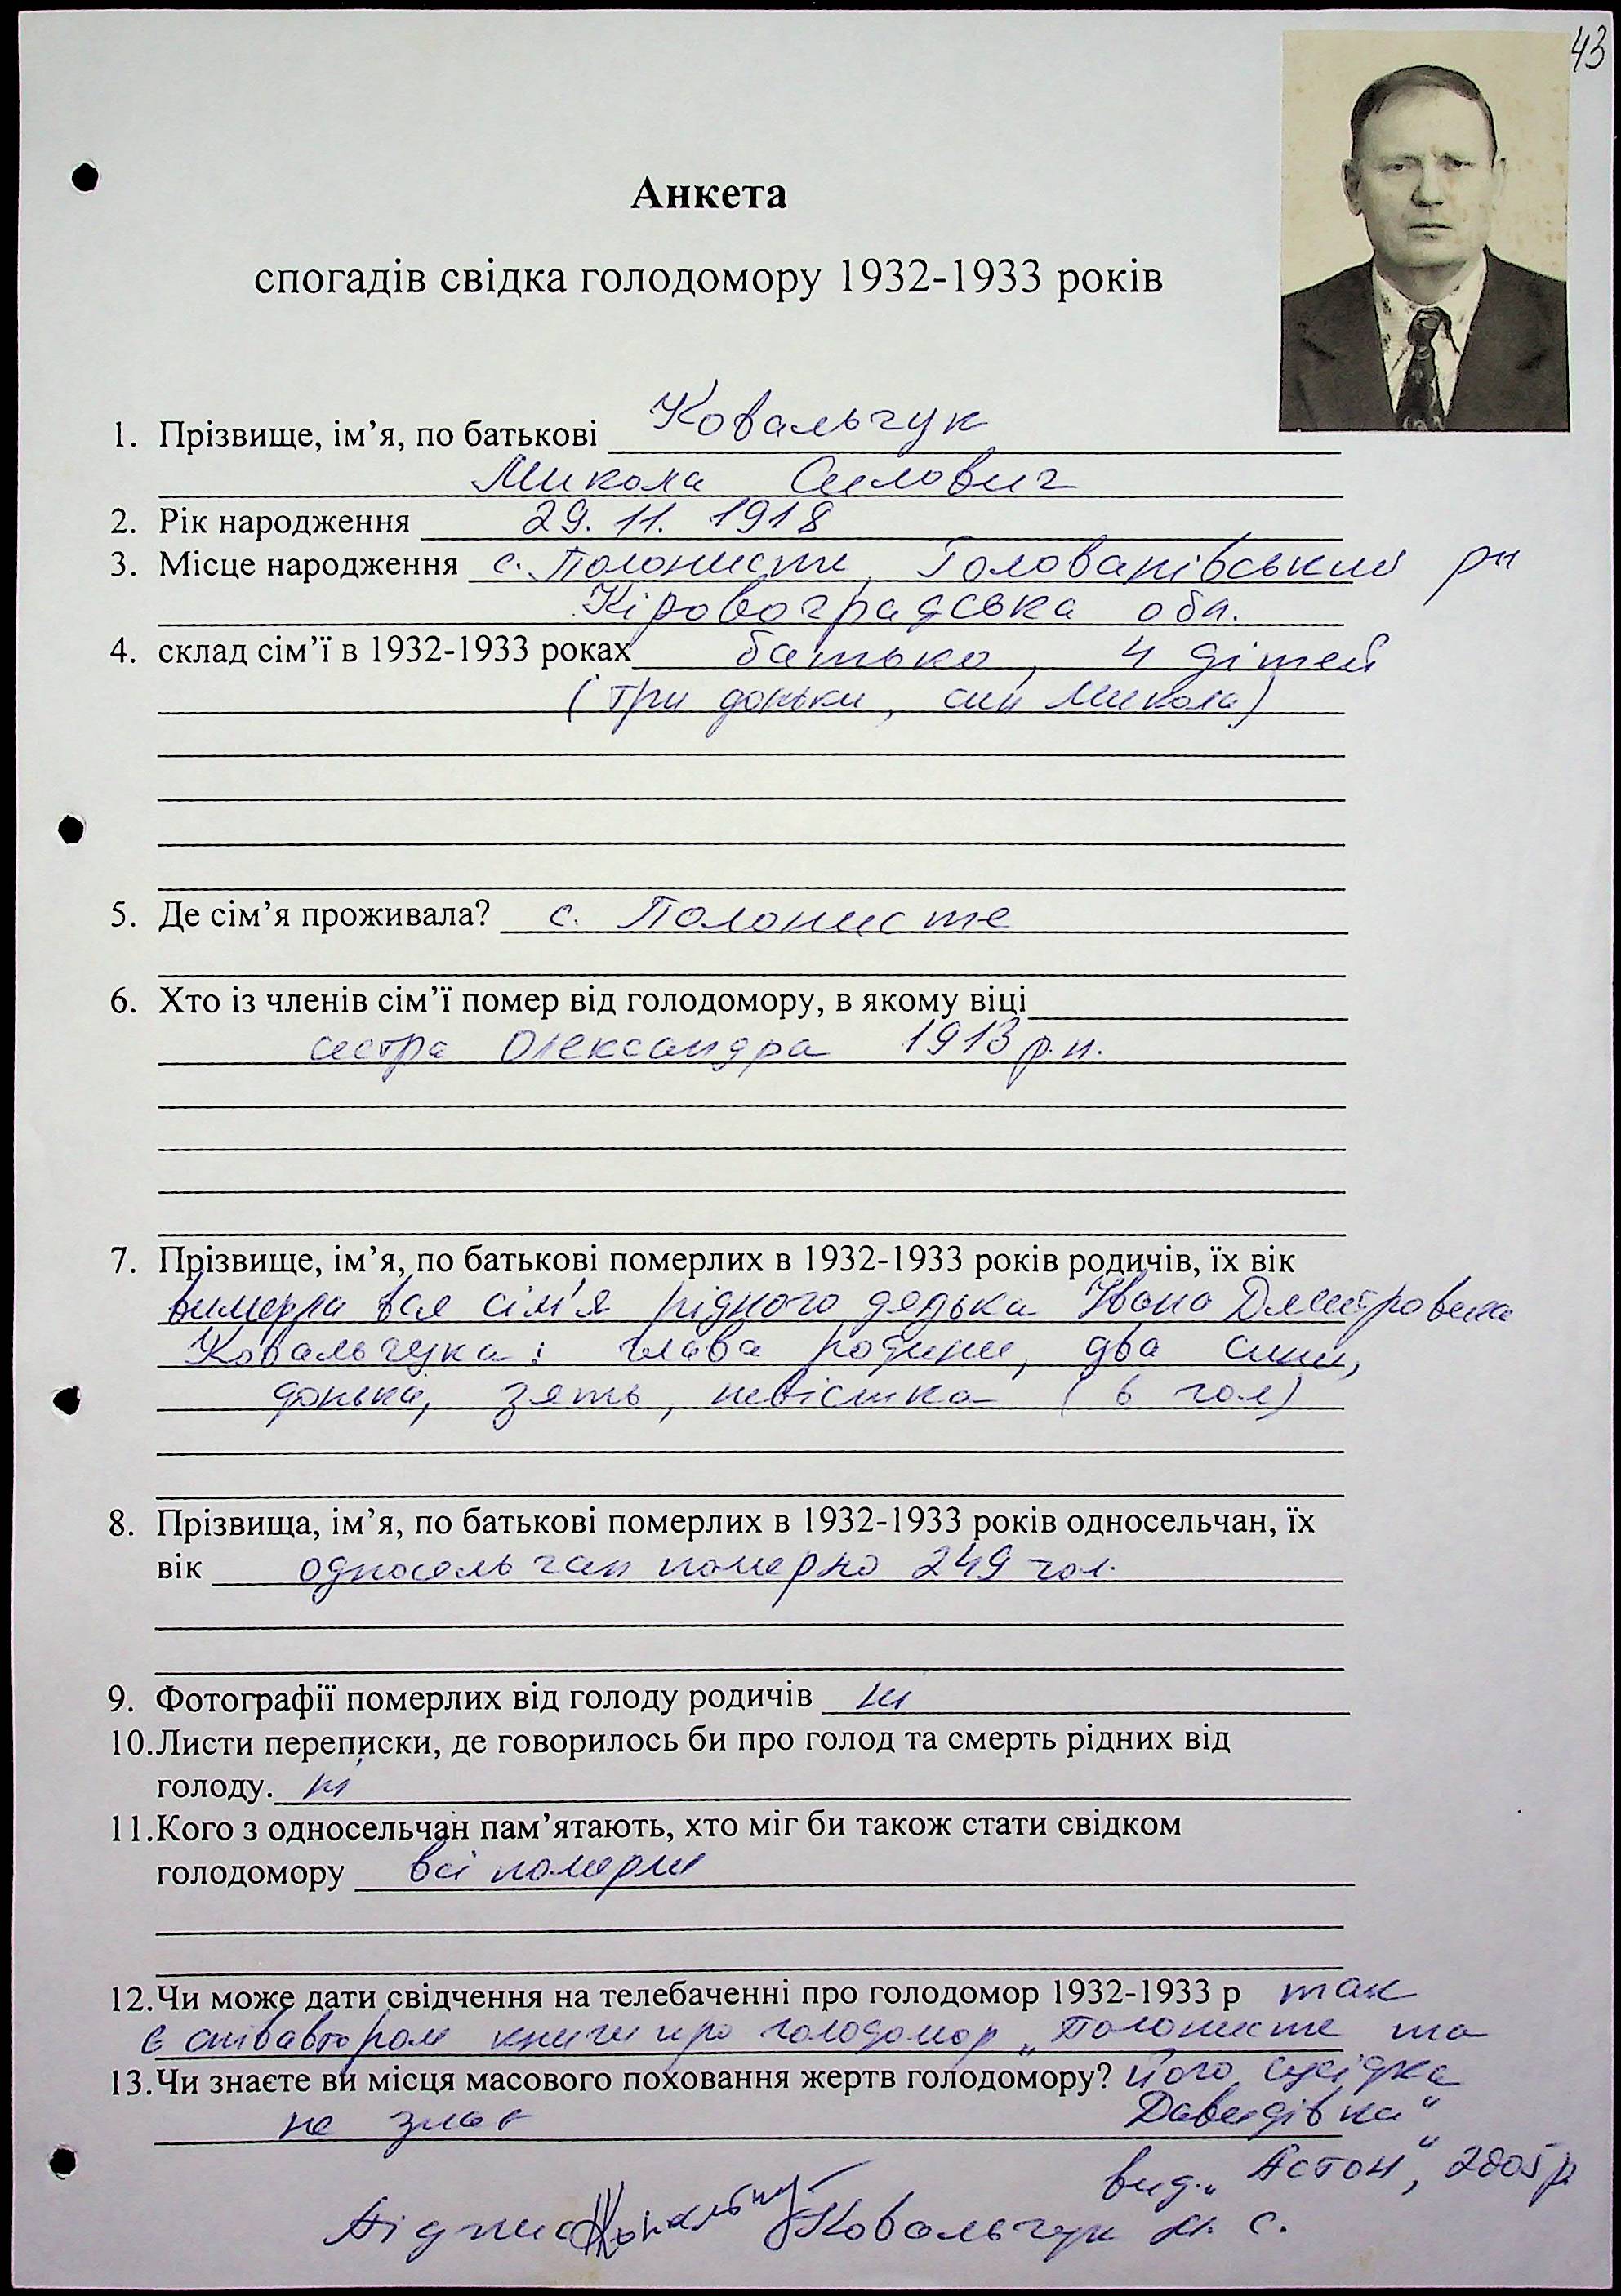 43
Анкета
спогадів свідка голодомору 1932-1933 років
1. Прізвище, ім’я, по батькові Ковальчук
Микола Силович
2. Рік народження 29. 11. 1918
3. Місце народження с. Полонисте, Голованівський рн
Кіровоградська обл.
4. склад сім’ї в 1932-1933 роках батько, 4 дітей
(три доньки, син Микола)
5. Де сім’я проживала? с. Полонисте
6. Хто із членів сім’ї помер від голодомору, в якому віці
сестра Олександра 1913 р.н.
7. Прізвище, ім’я, по батькові померлих в 1932-1933 років родичів, їх вік
вимерла вся сім'я рідного дядька Івана Дмитровича
Ковальчука: глава родини, два сини,
донька, зять, невістка (6 чол)
8. Прізвища, ім’я, по батькові померлих в 1932-1933 років односельчан, їх
вік односельчан померло 249 чол.
9. Фотографії померлих від голоду родичів ні
10.Листи переписки, де говорилось би про голод та смерть рідних від
голоду. ні
11.Кого з односельчан пам’ятають, хто міг би також стати свідком
голодомору всі померли
12.Чи може дати свідчення на телебаченні про голодомор 1932-1933 р так
є співавтором книги про голодомор „Полонисте та
13.Чи знаєте ви місця масового поховання жертв голодомору? його сусідка
не знає Давидівка"
вид. „Астон", 2005р
Підпис Ковальчук Ковальчук М. С.